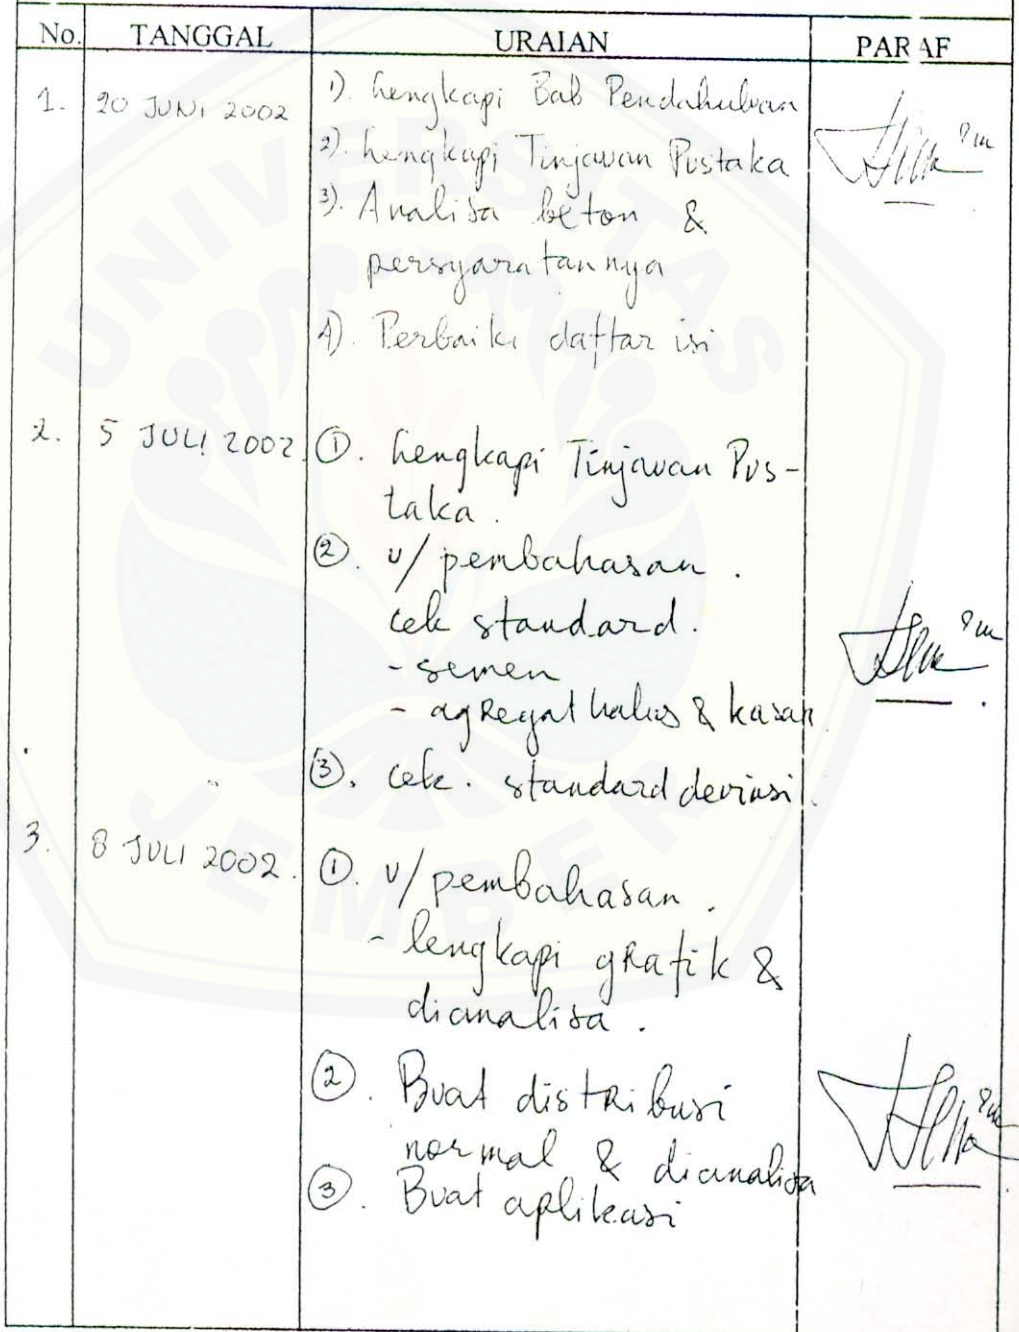 No. TANGGAL URAIAN PARAF
1. 20 JUNI 2002 1). Lengkapi Bab Pendahuluan
2). Lengkapi Tinjauan Pustaka
3). Analisa beton &
persyaratannya
4). Perbaiki daftar isi
2. 5 JULI 2002 ①. Lengkapi Tinjauan Pus-
taka.
②. u/ pembahasan.
cek standard.
- semen
- agregat halus & kasar
③. cek. standard deviasi.
3. 8 JULI 2002. ①. u/ pembahasan.
- lengkapi grafik &
dianalisa.
②. Buat distribusi
normal & dianalisa
③. Buat aplikasi
UNIVERSITAS
JEMBER